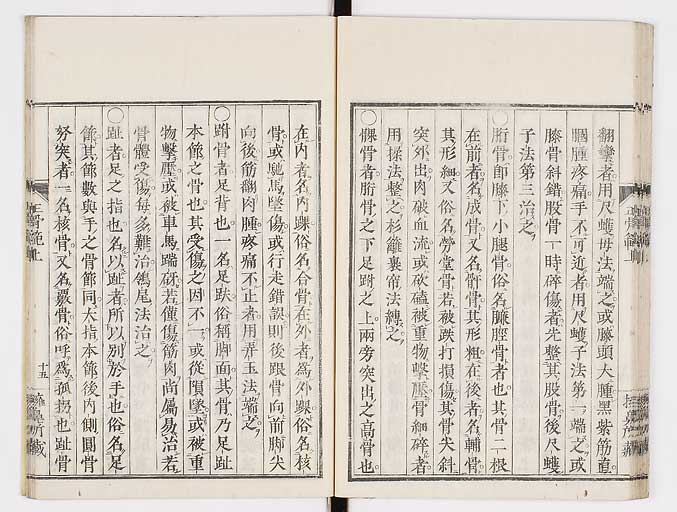 翻鸞者用尺蠖母法端之或膝頭大腫黑紫筋直
膕腫疼痛手不可近者用尺蠖子法第一端之或
膝骨斜錯股骨一時碎傷者先整其股骨後尺蠖
子法第三治之
〇胻骨即膝下小腿骨俗名臁脛骨者也其骨二根
在前者名成骨又名骭骨其形粗在後者名輔骨
其形細又俗名勞堂骨若被跌打損傷其骨尖斜
突外出肉破血流或砍磕被重物擊壓骨細碎者
用操法整之杉籬裹帘法縛之
〇髁骨者胻骨之下足跗之上兩旁突出之高骨也
在內者名內踝俗名合骨在外者爲外踝俗名核
骨或馳馬墜傷或行走錯誤則後跟骨向前脚尖
向後筋翻肉腫疼痛不止者用弄玉法端之
〇跗骨者足背也一名足趺俗稱脚面其骨乃足趾
本節之骨也其受傷之因不一或從隕墜或被重
物擊壓或被車馬踹砑若僅傷筋肉尚屬易治若
骨體受傷每多難治鴿尾法治之
〇趾者足之指也名以趾者所以別於手也俗名足
節其節數與手之骨節同大指本節後內側圓骨
努突者一名核骨又名覈骨俗呼爲孤拐也趾骨
正骨範上
十五